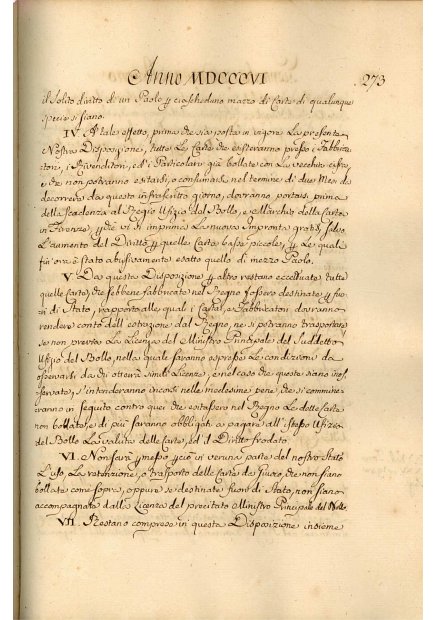 Anno MDCCCVI
273
il solito diritto di un Paolo p ciascheduno mazzo di Carte di qualunque
specie si siano.
IV. A tale effetto, prima che sia posta in vigore la presente
Nostra Disposizione, tutte le Carte che esisteranno presso i Fabbrica-
tori, i Rivenditori, ed i Particolari già bollate con la vecchia
e che non potranno esitarsi, o consumarsi nel termine di due Mesi da
decorrere da questo infrascritto giorno, dovranno portarsi prima
della scadenza al Regio Ufizio del Bollo, e Marchio delle Carte
in Firenze p che vi si imprima la nuova Impronta gratis, salvo
l'aumento del Diritto p quelle Carte basse piccole, p le quali
fin'ora è stato abusivamente esatto quello di mezzo Paolo.
V. Da questa Disposizione p altro restano eccettuate tutte
quelle Carte, che sebbene fabbricate nel Regno fossero destinate p fuori
di Stato, rapporto alle quali i Cartai, e Fabbricatori dovranno
rendere conto dell'estrazione dal Regno, ne si potranno trasportare
se non previa la Licenza del Ministro Principale del suddetto
Ufizio del Bollo, nella quale saranno espresse le condizioni da
osservarsi da chi otterrà simili Licenze, e nel caso che queste siano inos-
servate, s'intenderanno incorsi nelle medesime pene, che si commine-
ranno in seguito contro quei che esitassero nel Regno le dette Carte
non bollate, e di più saranno obbligati a pagare all'istesso Ufizio
del Bollo la valuta delle Carte, ed il Diritto frodato.
VI. Non sarà pmesso p ciò in veruna parte del nostro Stato
l'uso, la retenzione, o trasporto delle Carte da Giuoco, che non siano
bollate come sopra, oppure se destinate fuori di Stato, non siano
accompagnate dalla Licenza del precitato Ministro Principale del Bollo
VII. Restano comprese in questa Disposizione insieme